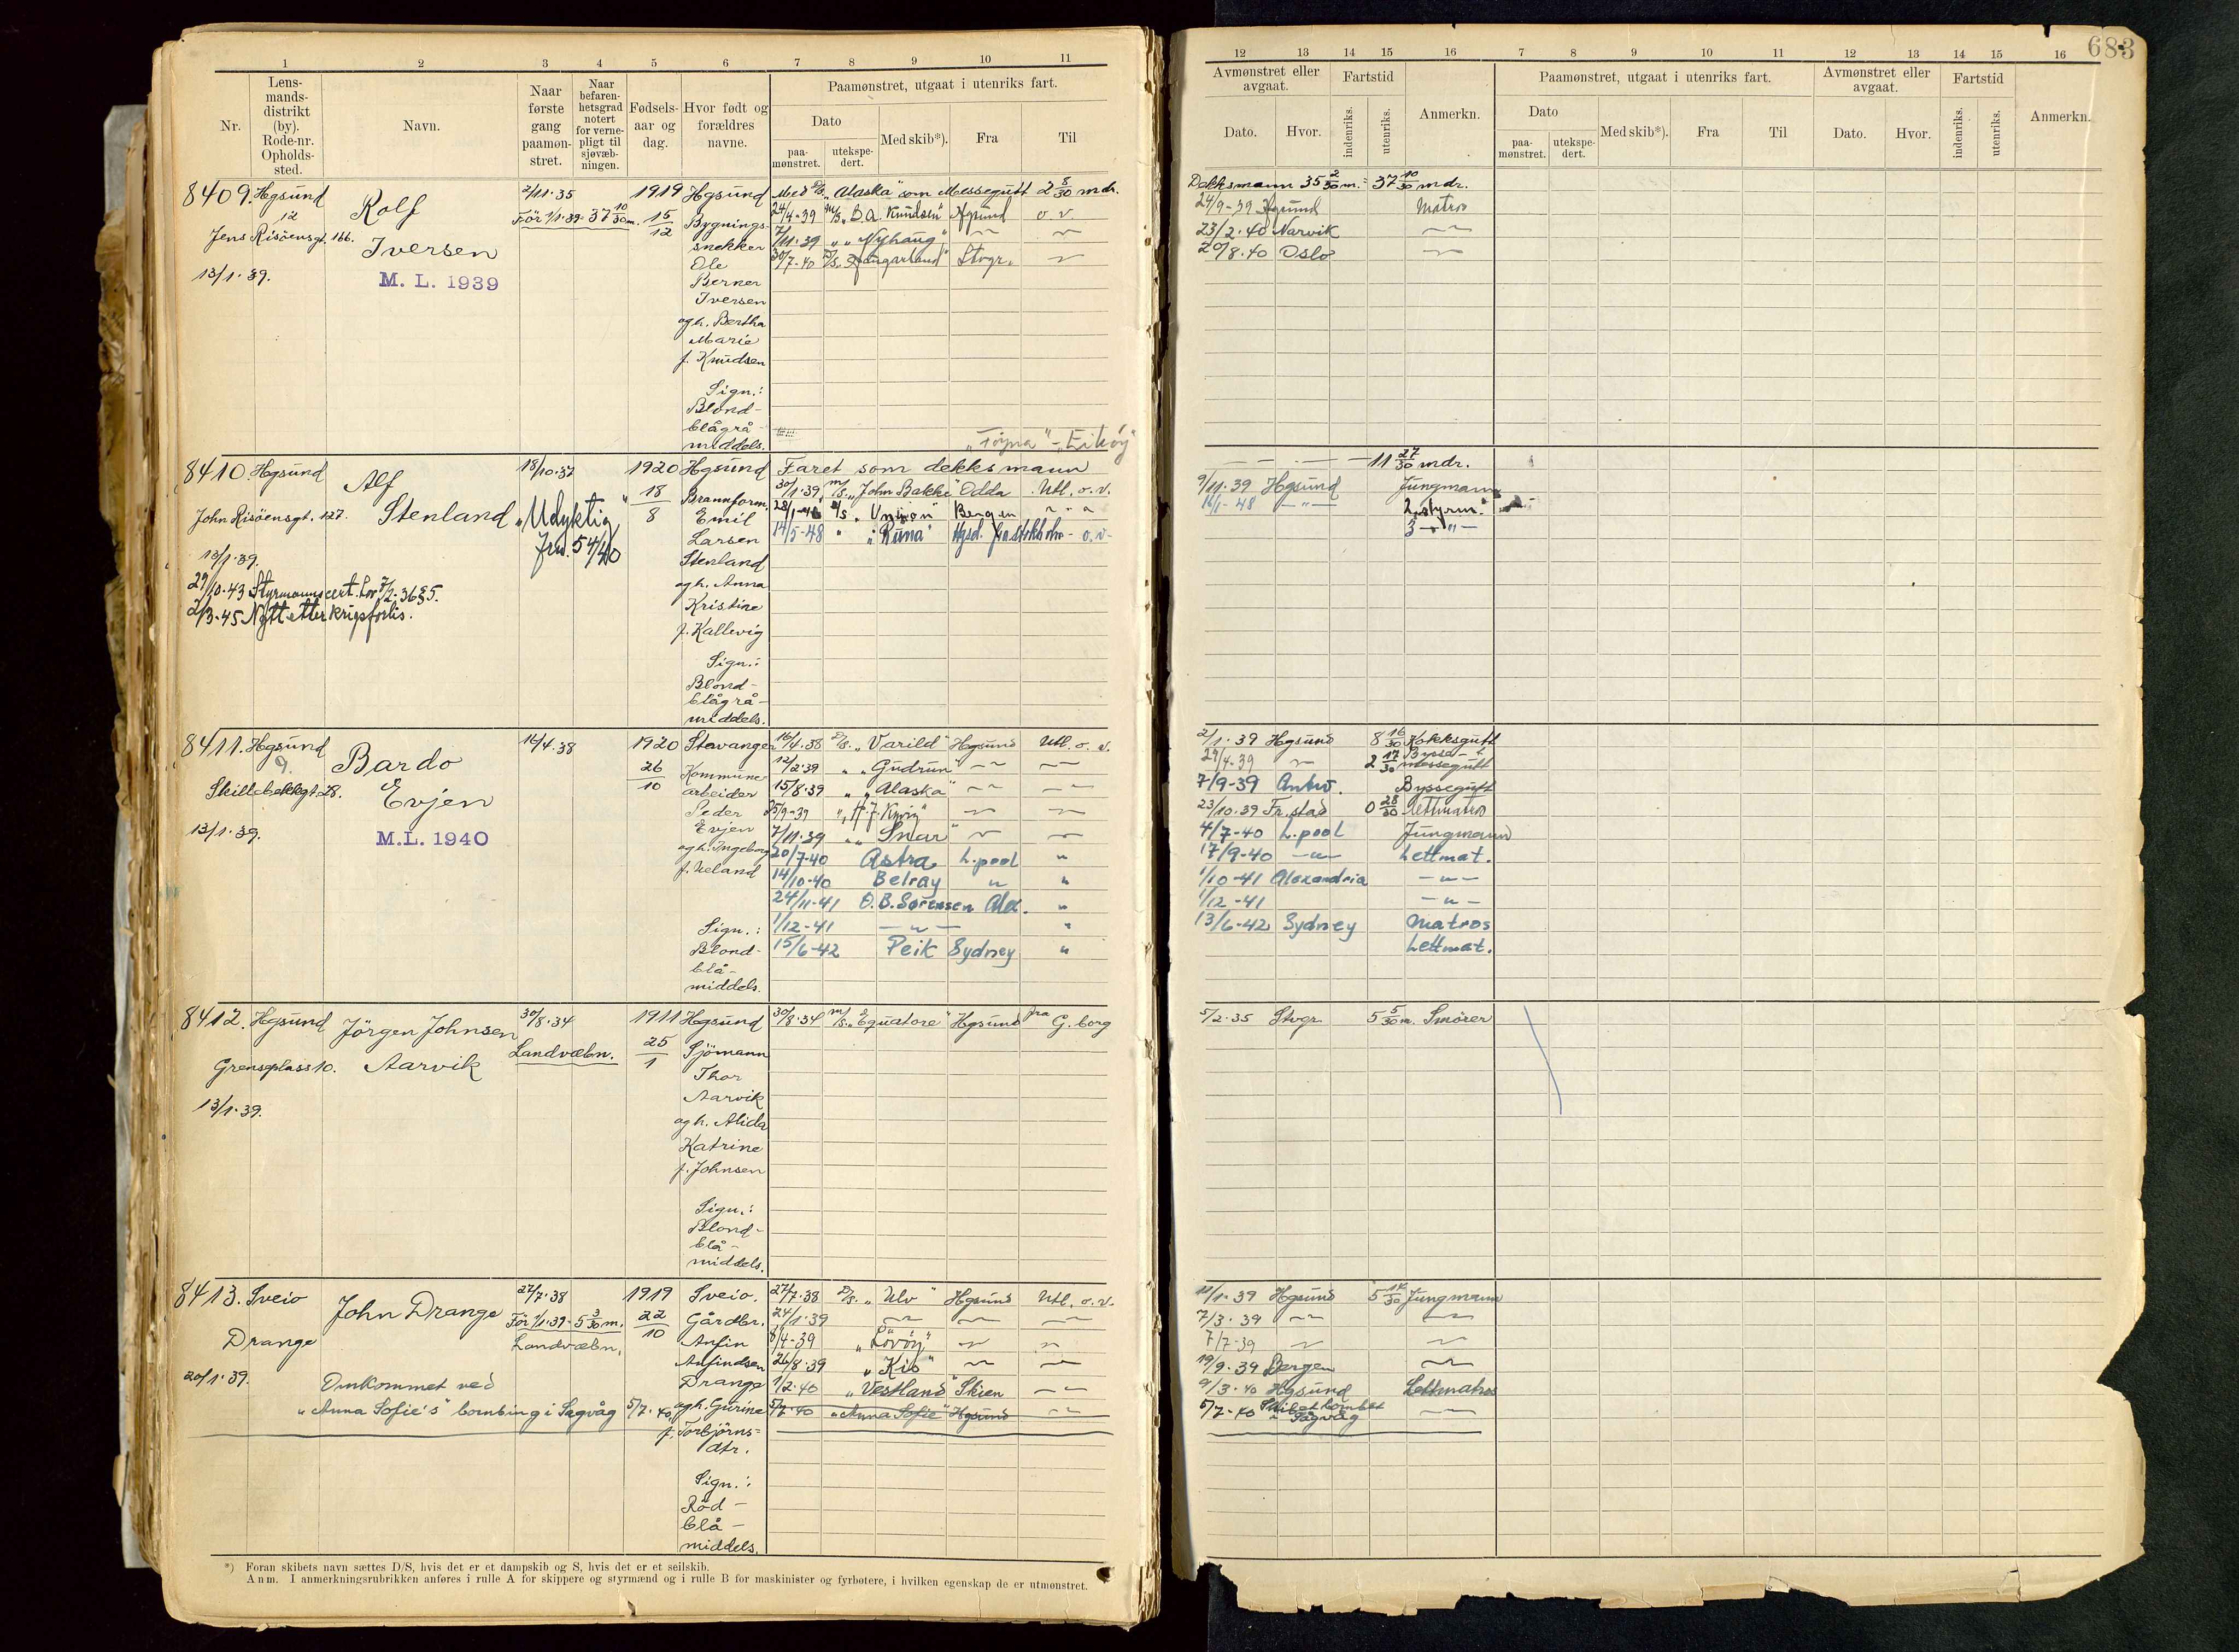 1 2 3 4 5 6 7 8 9 10 11
Nr.
Lens-
mands-
distrikt
(by).
Rode-nr.
Opholds-
sted.
Navn.
Naar
første
gang
paamøn-
stret.
Naar
befaren-
hetsgrad
notert
for verne-
pligt til
sjøvæb-
ningen.
Fødsels-
aar og
dag.
Hvor født og
forældres
navne.
Paamønstret, utgaat i utenriks fart.
Dato
paa-
mønstret.
utekspe-
dert.
Med skib*).
Fra
Til
8409. Hgsund
12
Jens Risöensgt. 166.
13/1·39.
Rolf
Iversen
M. L. 1939
2/11·35
För 1/1·39- 37 10/30 m.
1919
15/12
Hgsund
Bygnings-
snekker
Ole
Berner
Iversen
og h. Bertha
Marie
f. Knudsen
Sign.:
Blond-
blågrå-
middels.
Med D/S. "Alaska" som Messegutt 2 8/30 mdr.
24/4-39 M/S. "B.A. Knudsen" Hgsund o. v.
7/11·39 " "Nyhaug"
30/7-40 D/S. Stvgr.
8410. Hgsund
John Risöensgt. 127.
13/1·39.
29/10-43 Styrmannscert. Lov 7/2-36 § 5.
2/3-45 Nytt etter krigsforlis.
Alf
Stenland
18/10·37
"Udyktig"
Jrn. 54/40
1920
18/8
Hgsund
Brannform.
Emil
Larsen
Stenland
og h. Anna
Kristine
f. Kallevig
Sign.:
Blond-
blågrå-
middels.
Faret som dekksmann
30/1·39 M/S. "John Bakke" Odda Utl. o. v.
"Union" Bergen " "
14/5-48 " "Runa" Hgsd. fra Stokholm - o.v-
8411. Hgsund
9.
Skillebekkgt. 28.
13/1·39.
Bardo
Evjen
M.L. 1940
16/4·38
1920
26/10
Stavanger
Kommune-
arbeider
Peder
Evjen
og h. Ingeborg
f. Ueland
Sign.:
Blond-
blå-
middels.
16/4·38 D/S. "Varild" Hgsund Utl. o. v.
12/2·39 " "Gudrun"
15/8·39 " "Alaska"
25/9-39
7/11·39 " "Snar"
20/7-40 Astra L.pool "
14/10-40 Belray " "
24/11-41 O.B. Sörensen Alex. "
1/12-41 -"- "
15/6-42 Peik Sydney "
8412. Hgsund
Grenseplass 10.
13/1·39.
Jörgen Johnsen
Aarvik
30/8·34
Landvæbn.
1911
25/1
Hgsund
Sjömann
Thor
Aarvik
og h. Alida
Katrine
f. Johnsen
Sign.:
Blond-
blå-
middels.
30/8·34 M/S. "Equatore" Hgsund fra G. borg
8413. Sveio
Drange
20/1·39.
John Drange
27/7·38
För 1/1·39- 5 3/30 m.
Landvæbn.
1919
22/10
Sveio.
Gårdbr.
Anfin
Anfindsen
Drange
og h. Gurine
f. Torbjörns-
dtr.
Sign.:
Röd-
blå-
middels.
Omkommet ved
"Anna Sofie's" bombing i Sagvåg 5/7·40.
27/7·38 D/S. "Ulv" Hgsund Utl. o. v.
24/1·39
8/4-39 "Lövöy"
26/8·39 "Kis"
1/2·40 "Vestland" Skien
5/7·40 "Anna Sofie" Hgsund
*) Foran skibets navn sættes D/S, hvis det er et dampskib og S, hvis det er et seilskib.
Anm. I anmerkningsrubrikken anføres i rulle A for skippere og styrmænd og i rulle B for maskinister og fyrbøtere, i hvilken egenskap de er utmønstret.
683
12 13 14 15 16 7 8 9 10 11 12 13 14 15 16
Avmønstret eller
avgaat.
Fartstid
Dato.
Hvor.
indenriks.
utenriks.
Anmerkn.
Paamønstret, utgaat i utenriks fart.
Dato
paa-
mønstret.
utekspe-
dert.
Med skib*).
Fra
Til
Avmønstret eller
avgaat.
Dato.
Hvor.
Fartstid
indenriks.
utenriks.
Anmerkn.
Dekksmann 35 2/30 m. = 37 10/30 mdr.
24/9-39 Hgsund Matros
23/2·40 Narvik
20/8·40 Oslo
— 11 27/30 mdr.
9/11·39 Hgsund Jungmann
16/1-48 -"- 2. styrm.
3 -"-
2/1·39 Hgsund 8 16/30 Kokksgutt
29/4-39 2 17/30 Bysse- & messegutt
7/9-39 Antw. Byssegutt
23/10·39 Fr.stad 0 28/30 Lettmatros
4/7-40 L.pool Jungmann
17/9-40 -"- Lettmat.
1/10-41 Alexandria -"-
1/12-41 -"-
13/6-42 Sydney Matros
Lettmat.
5/2·35 Stvgr. 5 5/30 m. Smörer
11/1·39 Hgsund 5 14/30 Jungmann
7/3·39
7/7-39
19/9·39 Bergen
9/3·40 Hgsund Lettmatros
5/7-40 Skibet bombet
i Sagvåg